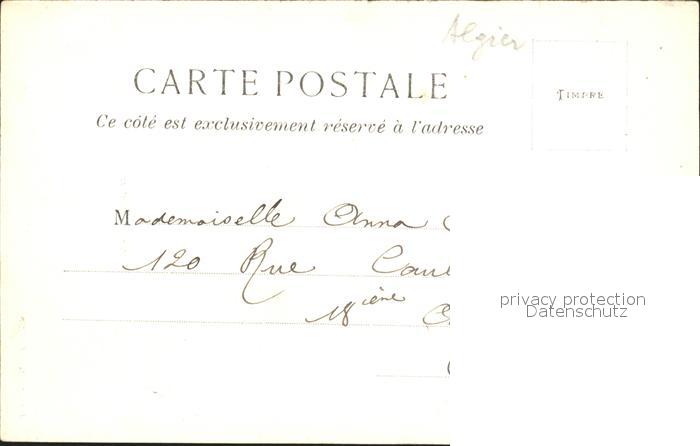 Algier
CARTE POSTALE
TIMBRE
Ce côté est exclusivement réservé à l'adresse
Mademoiselle Anna
120 Rue
18ième
privacy protection
Datenschutz